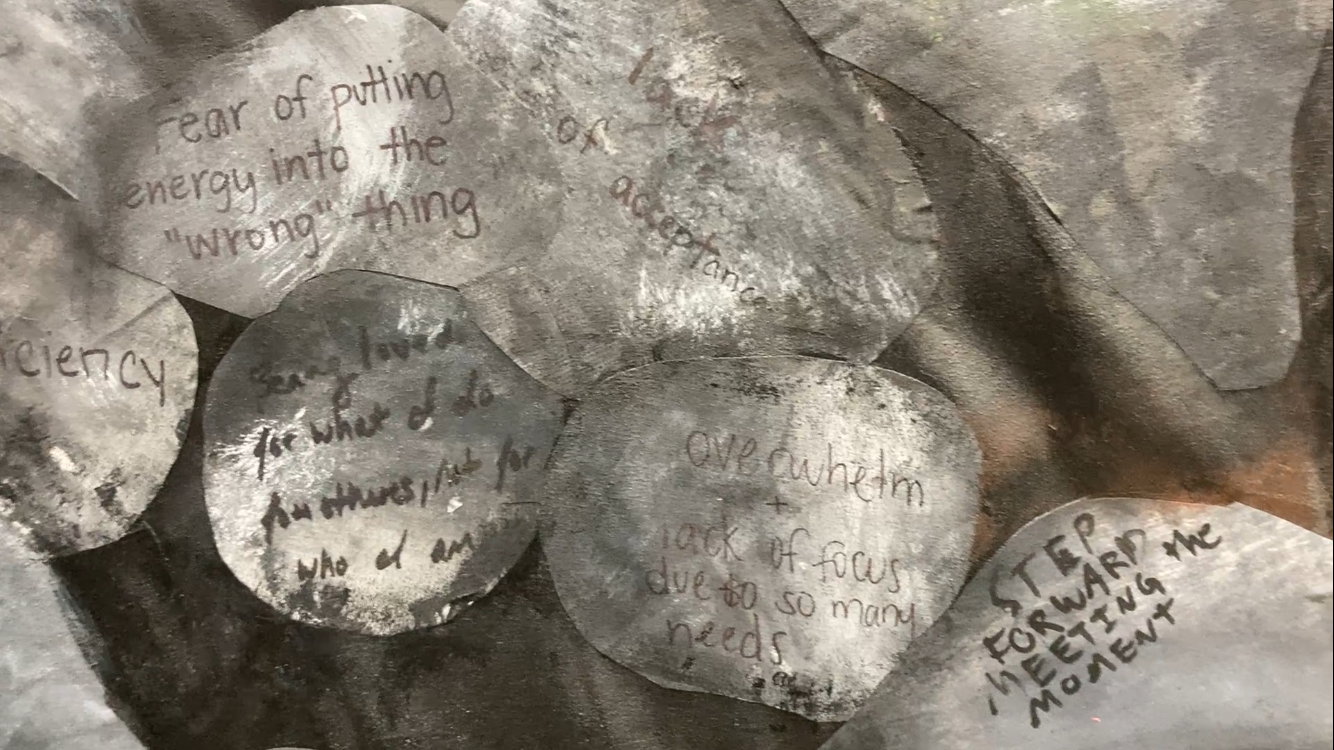 Fear of putting
energy into the
"wrong" thing
lack
of
acceptance
ciency
Being loved
for what I do
for others, not for
who I am
overwhelm
+
lack of focus
due to so many
needs
STEP
FORWARD the
MEETING
MOMENT